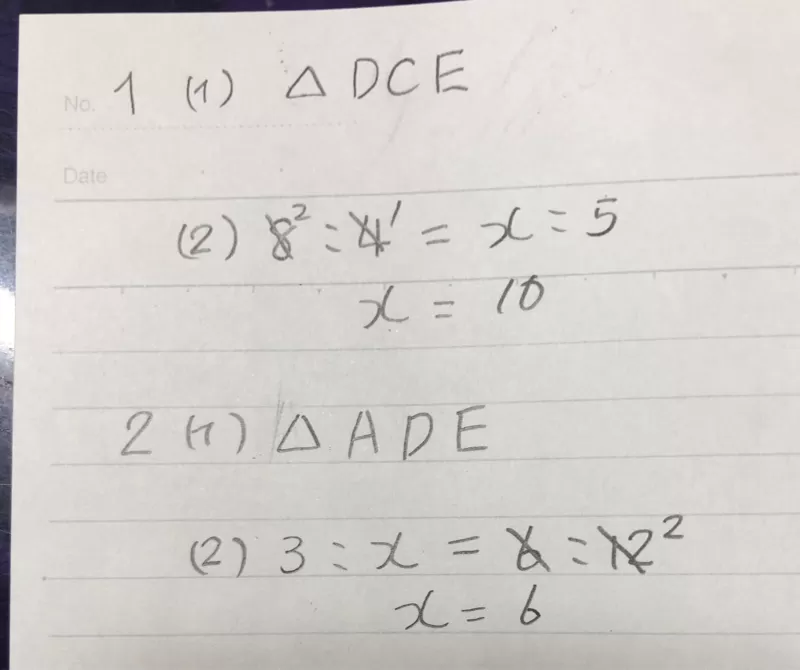 No. 1 (1) △DCE
Date
(2) 8² : 4¹ = x : 5
x = 10
2 (1) △ADE
(2) 3 : x = 6 : 12²
x = 6